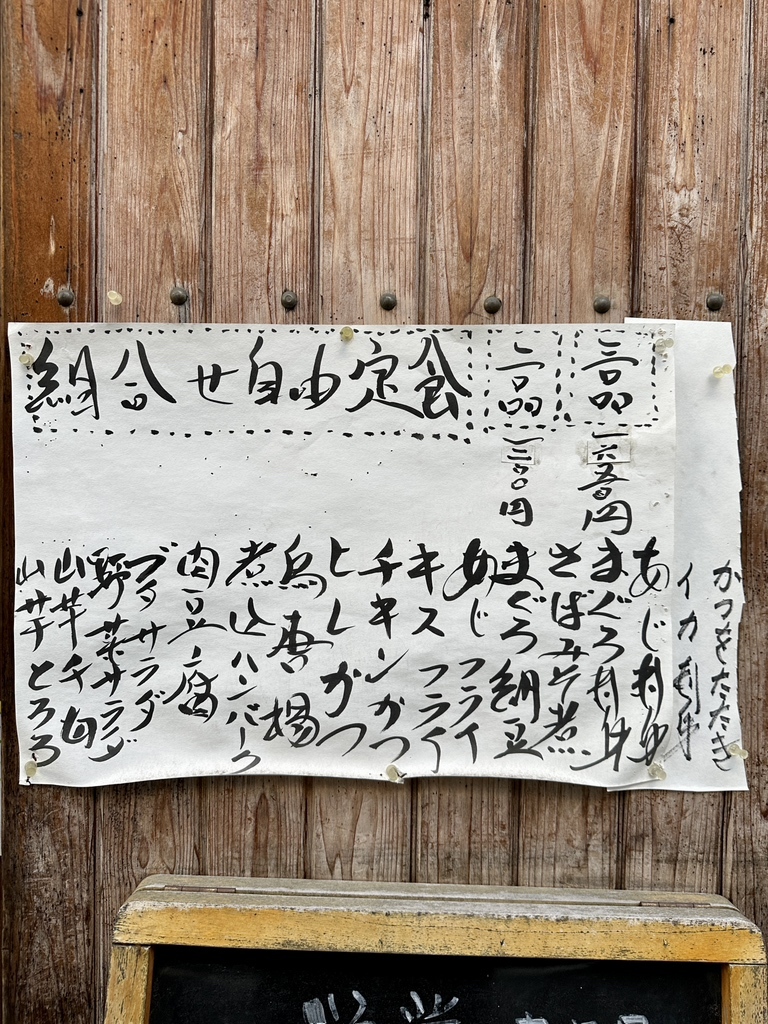 組合せ自由定食
二品
一二〇〇円
三品
一六五〇円
かつをたたき
イカ刺身
あじ刺身
まぐろ刺身
さばみそ煮
まぐろ納豆
あじフライ
キスフライ
チキンかつ
ヒレかつ
鳥唐揚
煮込ハンバーグ
肉豆腐
サラダ
野菜サラダ
山芋千切
山芋とろろ